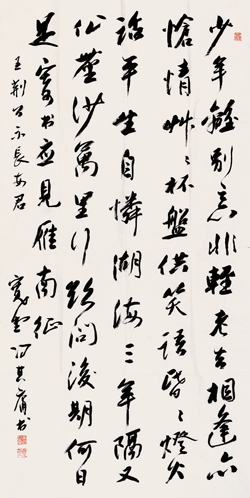 少年離別意非輕老去相逢亦
愴情艸〻杯盤供笑語昏〻燈火
話平生自憐湖海三年隔又
作塵沙萬里行欲問後期何日
是寄書應見雁南征
王荆公示長安君 寬堂馮其庸書